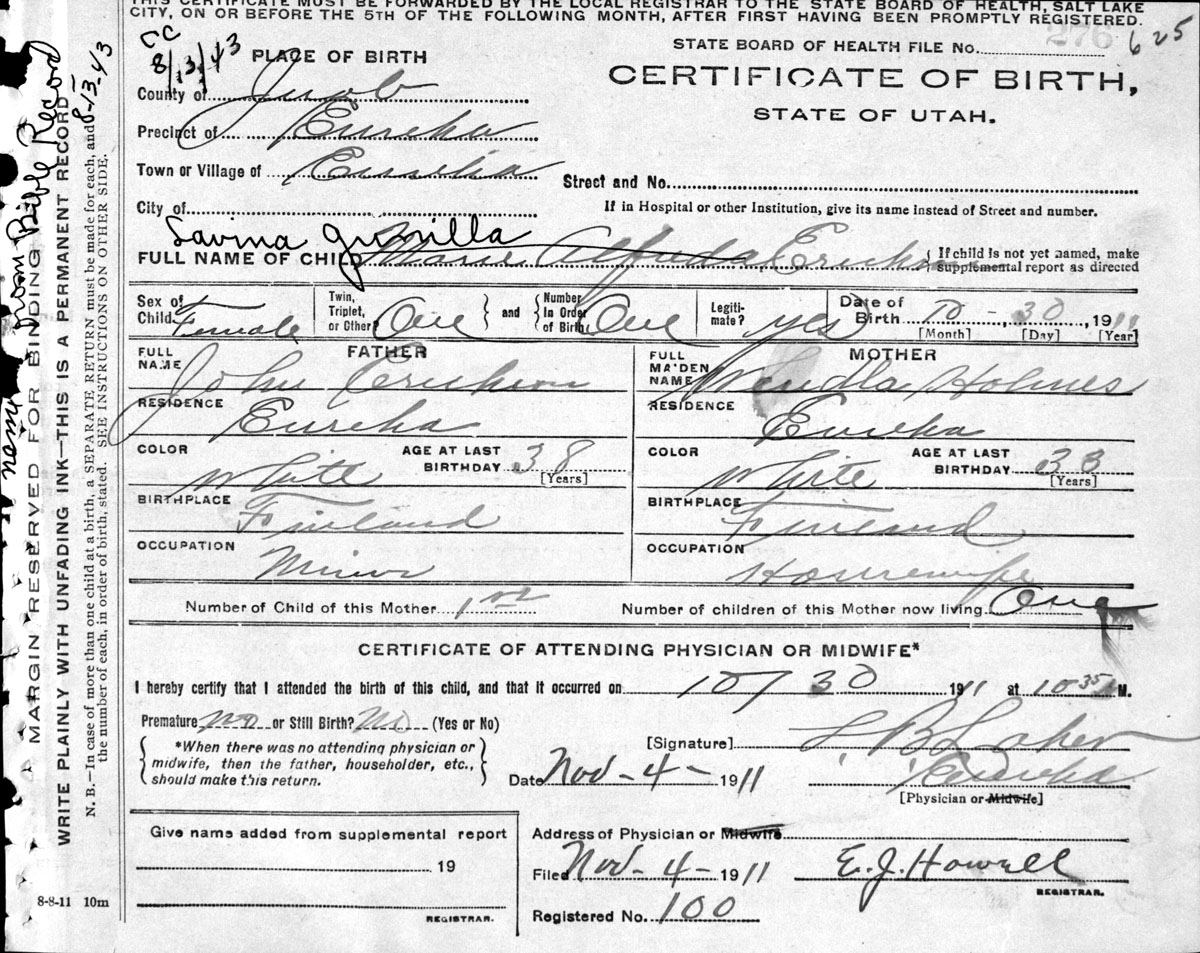 THIS CERTIFICATE MUST BE FORWARDED BY THE LOCAL REGISTRAR TO THE STATE BOARD OF HEALTH, SALT LAKE
CITY, ON OR BEFORE THE 5TH OF THE FOLLOWING MONTH, AFTER FIRST HAVING BEEN PROMPTLY REGISTERED.
CC
8/13/43
PLACE OF BIRTH
STATE BOARD OF HEALTH FILE No. 276 625
CERTIFICATE OF BIRTH,
STATE OF UTAH.
County of Juab
Precinct of Eureka
Town or Village of Eureka
Street and No.
City of
If in Hospital or other Institution, give its name instead of Street and number.
Savina Gunilla
FULL NAME OF CHILD Marie Alfreda Erickson { If child is not yet named, make
supplemental report as directed
Sex of Child. Female Twin, Triplet, or Other? One } and { Number In Order of Birth One Legitimate? yes Date of Birth 10 - 30, 1911
[Month] [Day] [Year]
FATHER MOTHER
FULL NAME John Erickson FULL MAIDEN NAME Wendla Holmes
RESIDENCE Eureka RESIDENCE Eureka
COLOR White AGE AT LAST BIRTHDAY 38 [Years] COLOR White AGE AT LAST BIRTHDAY 38 [Years]
BIRTHPLACE Finland BIRTHPLACE Finland
OCCUPATION Miner OCCUPATION Housewife
Number of Child of this Mother 1st Number of children of this Mother now living One
CERTIFICATE OF ATTENDING PHYSICIAN OR MIDWIFE*
I hereby certify that I attended the birth of this child, and that it occurred on 10/30 1911 at 10 35 M.
Premature no or Still Birth? No (Yes or No)
*When there was no attending physician or midwife, then the father, householder, etc., should make this return.
[Signature] L. B. Laker
Date Nov - 4 - 1911 Eureka
[Physician or Midwife]
Give name added from supplemental report
19
REGISTRAR.
Address of Physician or Midwife
Filed Nov - 4 - 1911 E. J. Howell
REGISTRAR.
Registered No. 100
8-8-11 10m
name from Bible Record
8-13-43
MARGIN RESERVED FOR BINDING
WRITE PLAINLY WITH UNFADING INK—THIS IS A PERMANENT RECORD
N. B.—In case of more than one child at a birth, a SEPARATE RETURN must be made for each, and
the number of each, in order of birth, stated. SEE INSTRUCTIONS ON OTHER SIDE.